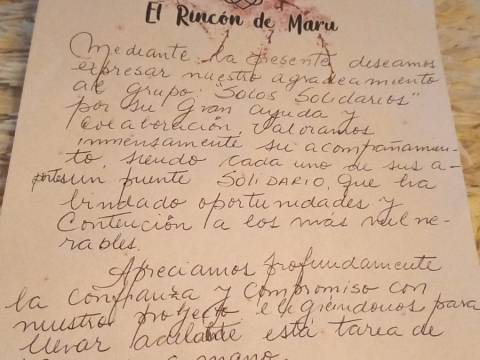 El Rincón de Maru
Mediante la presente deseamos
expresar nuestro agradecimiento
al grupo: "Solos Solidarios"
por su gran ayuda y
colaboración, valoramos
inmensamente su acompañamien-
to, siendo cada uno de sus a-
portes un puente SOLIDARIO, que ha
brindado oportunidades y
Contención a los más vulne-
rables.
Apreciamos profundamente
la confianza y compromiso con
nuestro proyecto eligiéndonos para
llevar adelante esta tarea de
a mano.